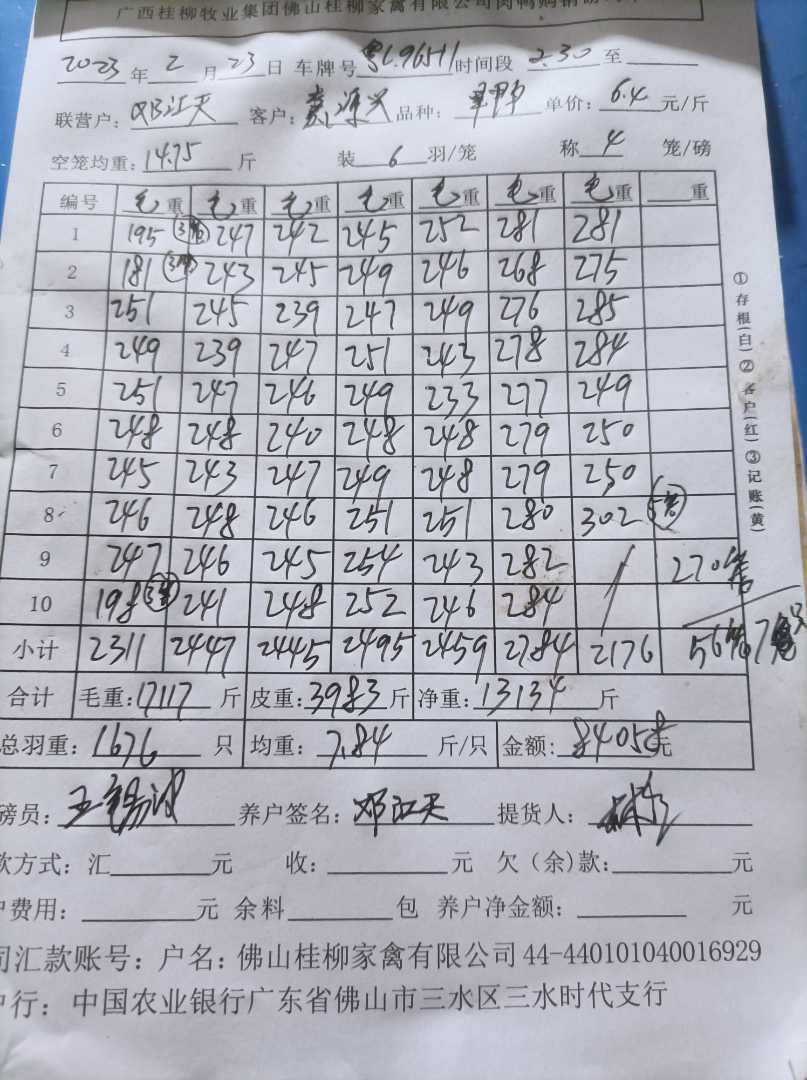 广西桂柳牧业集团佛山桂柳家禽有限公司肉鸭购销
2023年2月23日 车牌号粤L96511时间段2.30至
联营户:邓江天 客户: 源兴 品种: 单价:6.4元/斤
空笼均重:14.75斤 装6羽/笼 称4笼/磅
编号 毛重 毛重 毛重 毛重 毛重 毛重 毛重 重
1 195 3笼 247 242 245 252 281 281
2 181 3笼 243 245 249 246 268 275
3 251 245 239 247 249 276 285
4 249 239 247 251 243 278 284
5 251 247 246 249 233 277 249
6 248 248 240 248 248 279 250
7 245 243 247 249 248 279 250
8 246 248 246 251 251 280 302 5笼
9 247 246 245 254 243 282 / 270笼
10 198 3笼 241 248 252 246 284 /
小计 2311 2447 2445 2495 2459 2784 2176 56笼7
合计 毛重:17117斤 皮重:3983斤 净重:13134斤
总羽重:1676只 均重:7.84斤/只 金额:84058元
磅员:王锡波 养户签名:邓江天 提货人:
款方式:汇元 收:元 欠(余)款:元
户费用:元 余料包 养户净金额:元
司汇款账号:户名:佛山桂柳家禽有限公司44-440101040016929
户行:中国农业银行广东省佛山市三水区三水时代支行
①存根(白)②客户(红)③记账(黄)